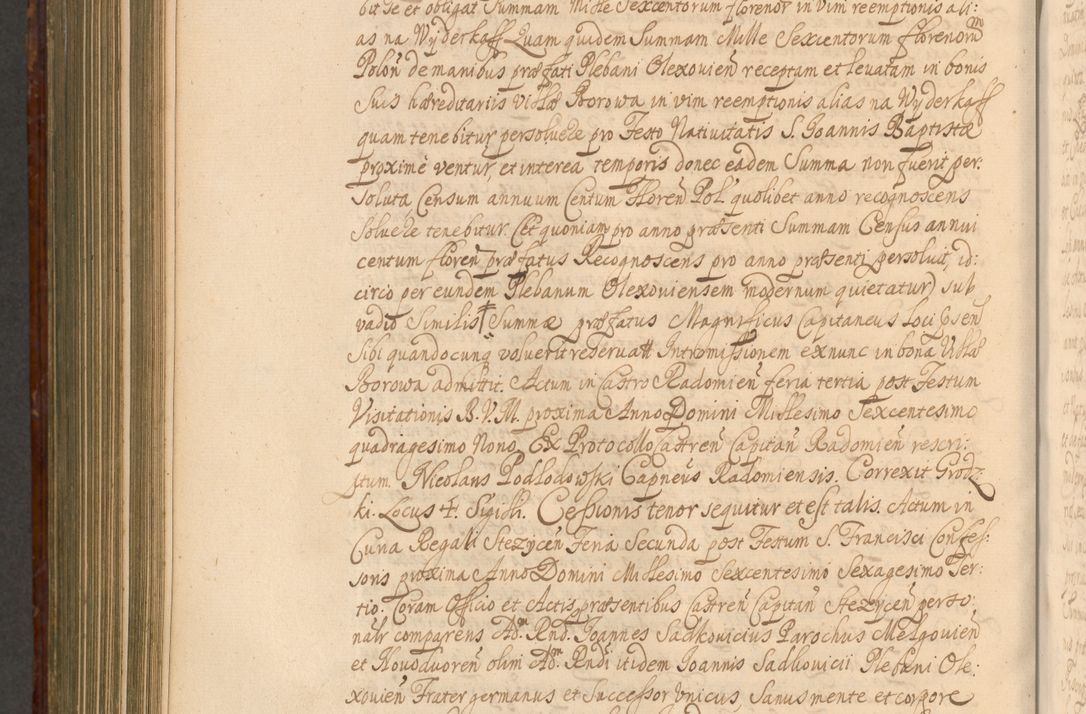 bit se et obligat Summam Mille Sexcentorum florenor in vim reemptionis ali:
as na Wyderkaff Quam quidem Summam Mille Sexcentorum florenorū
Poloñ de manibus præfati Plebani Olexovieñ receptam et levatam in bonis
Suis hæreditariis Villæ Borowa in vim reemptionis alias na Wyderkaff
quam tenebitur persolvere pro Festo Nativitatis S. Joannis Baptistæ
proximè ventur, et interea temporis donec eadem Summa non fuerit per:
soluta Censum annuum Centum Floreñ Pol: quolibet anno recognoscens
Solvere tenebitur. Et quoniam pro anno præsenti Summam Census annui
centum floreñ præfatus Recognoscens pro anno præsenti persolvit, id:
circo per eundem Plebanum Olexoviensem modernum quietatur) sub
vadio Similis Summæ præfatus Magnificus Capitaneus Loci ipseñ
sibi quandocunq voluerit reservatt Intromissionem exnunc in bona Villæ
Borowa admittit. Actum in Castro Radomieñ feria tertia post Festum
Visitationis B. V. M. proxima Anno Domini Millesimo Sexcentesimo
quadragesimo Nono. Ex Protocollo Castreñ Capitañ Radomieñ rescri:
ptum. Nicolaus Podlodowski Capneus Radomiensis. Correxit Grodz:
ki. Locus Ɨ. Sigilli. Cessionis tenor sequitur et est talis. Actum in
Curia Regali Stezyceñ Feria Secunda post Festum S. Francisci Confes:
soris proxima Anno Domini Millesimo Sexcentesimo Sexagesimo Ter:
tio. Coram Officio et Actis præsentibus Castreñ Capitañ Stezyceñ perso:
nalr comparens Adm Rnd. Joannes Sadkovicius Parochus Mełgovieñ
et Novodvoreñ olim Adm Rndi itidem Joannis Sadkovicii Plebani Ole:
xovieñ Frater germanus et Successor Unicus, Sanus mente et corpore